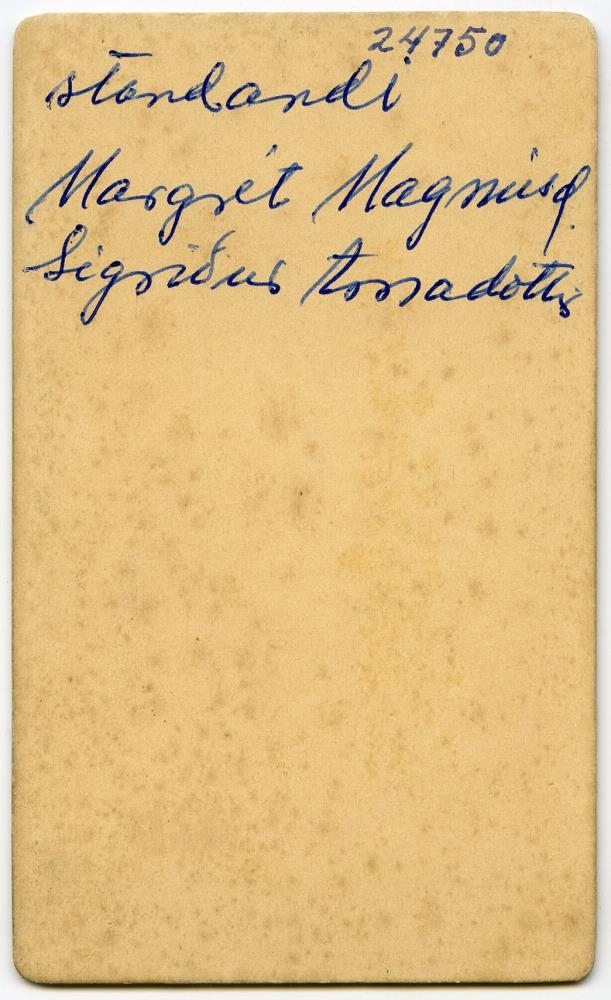 24750
standandi
Margrét Magnúsd.
Sigríður